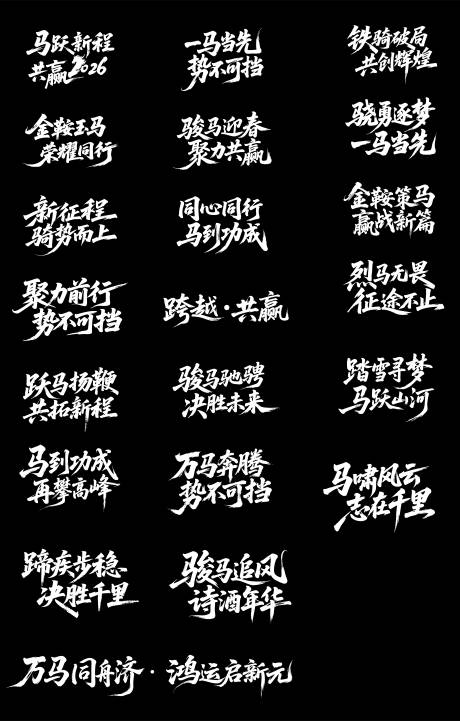 马跃新程
共赢2026
一马当先
势不可挡
铁骑破局
共创辉煌
金鞍玉马
荣耀同行
骏马迎春
聚力共赢
骁勇逐梦
一马当先
新征程
骑势而上
同心同行
马到功成
金鞍策马
赢战新篇
聚力前行
势不可挡
跨越·共赢
烈马无畏
征途不止
跃马扬鞭
共拓新程
骏马驰骋
决胜未来
踏雪寻梦
马跃山河
马到功成
再攀高峰
万马奔腾
势不可挡
马啸风云
志在千里
蹄疾步稳
决胜千里
骏马追风
诗酒年华
万马同舟济·鸿运启新元